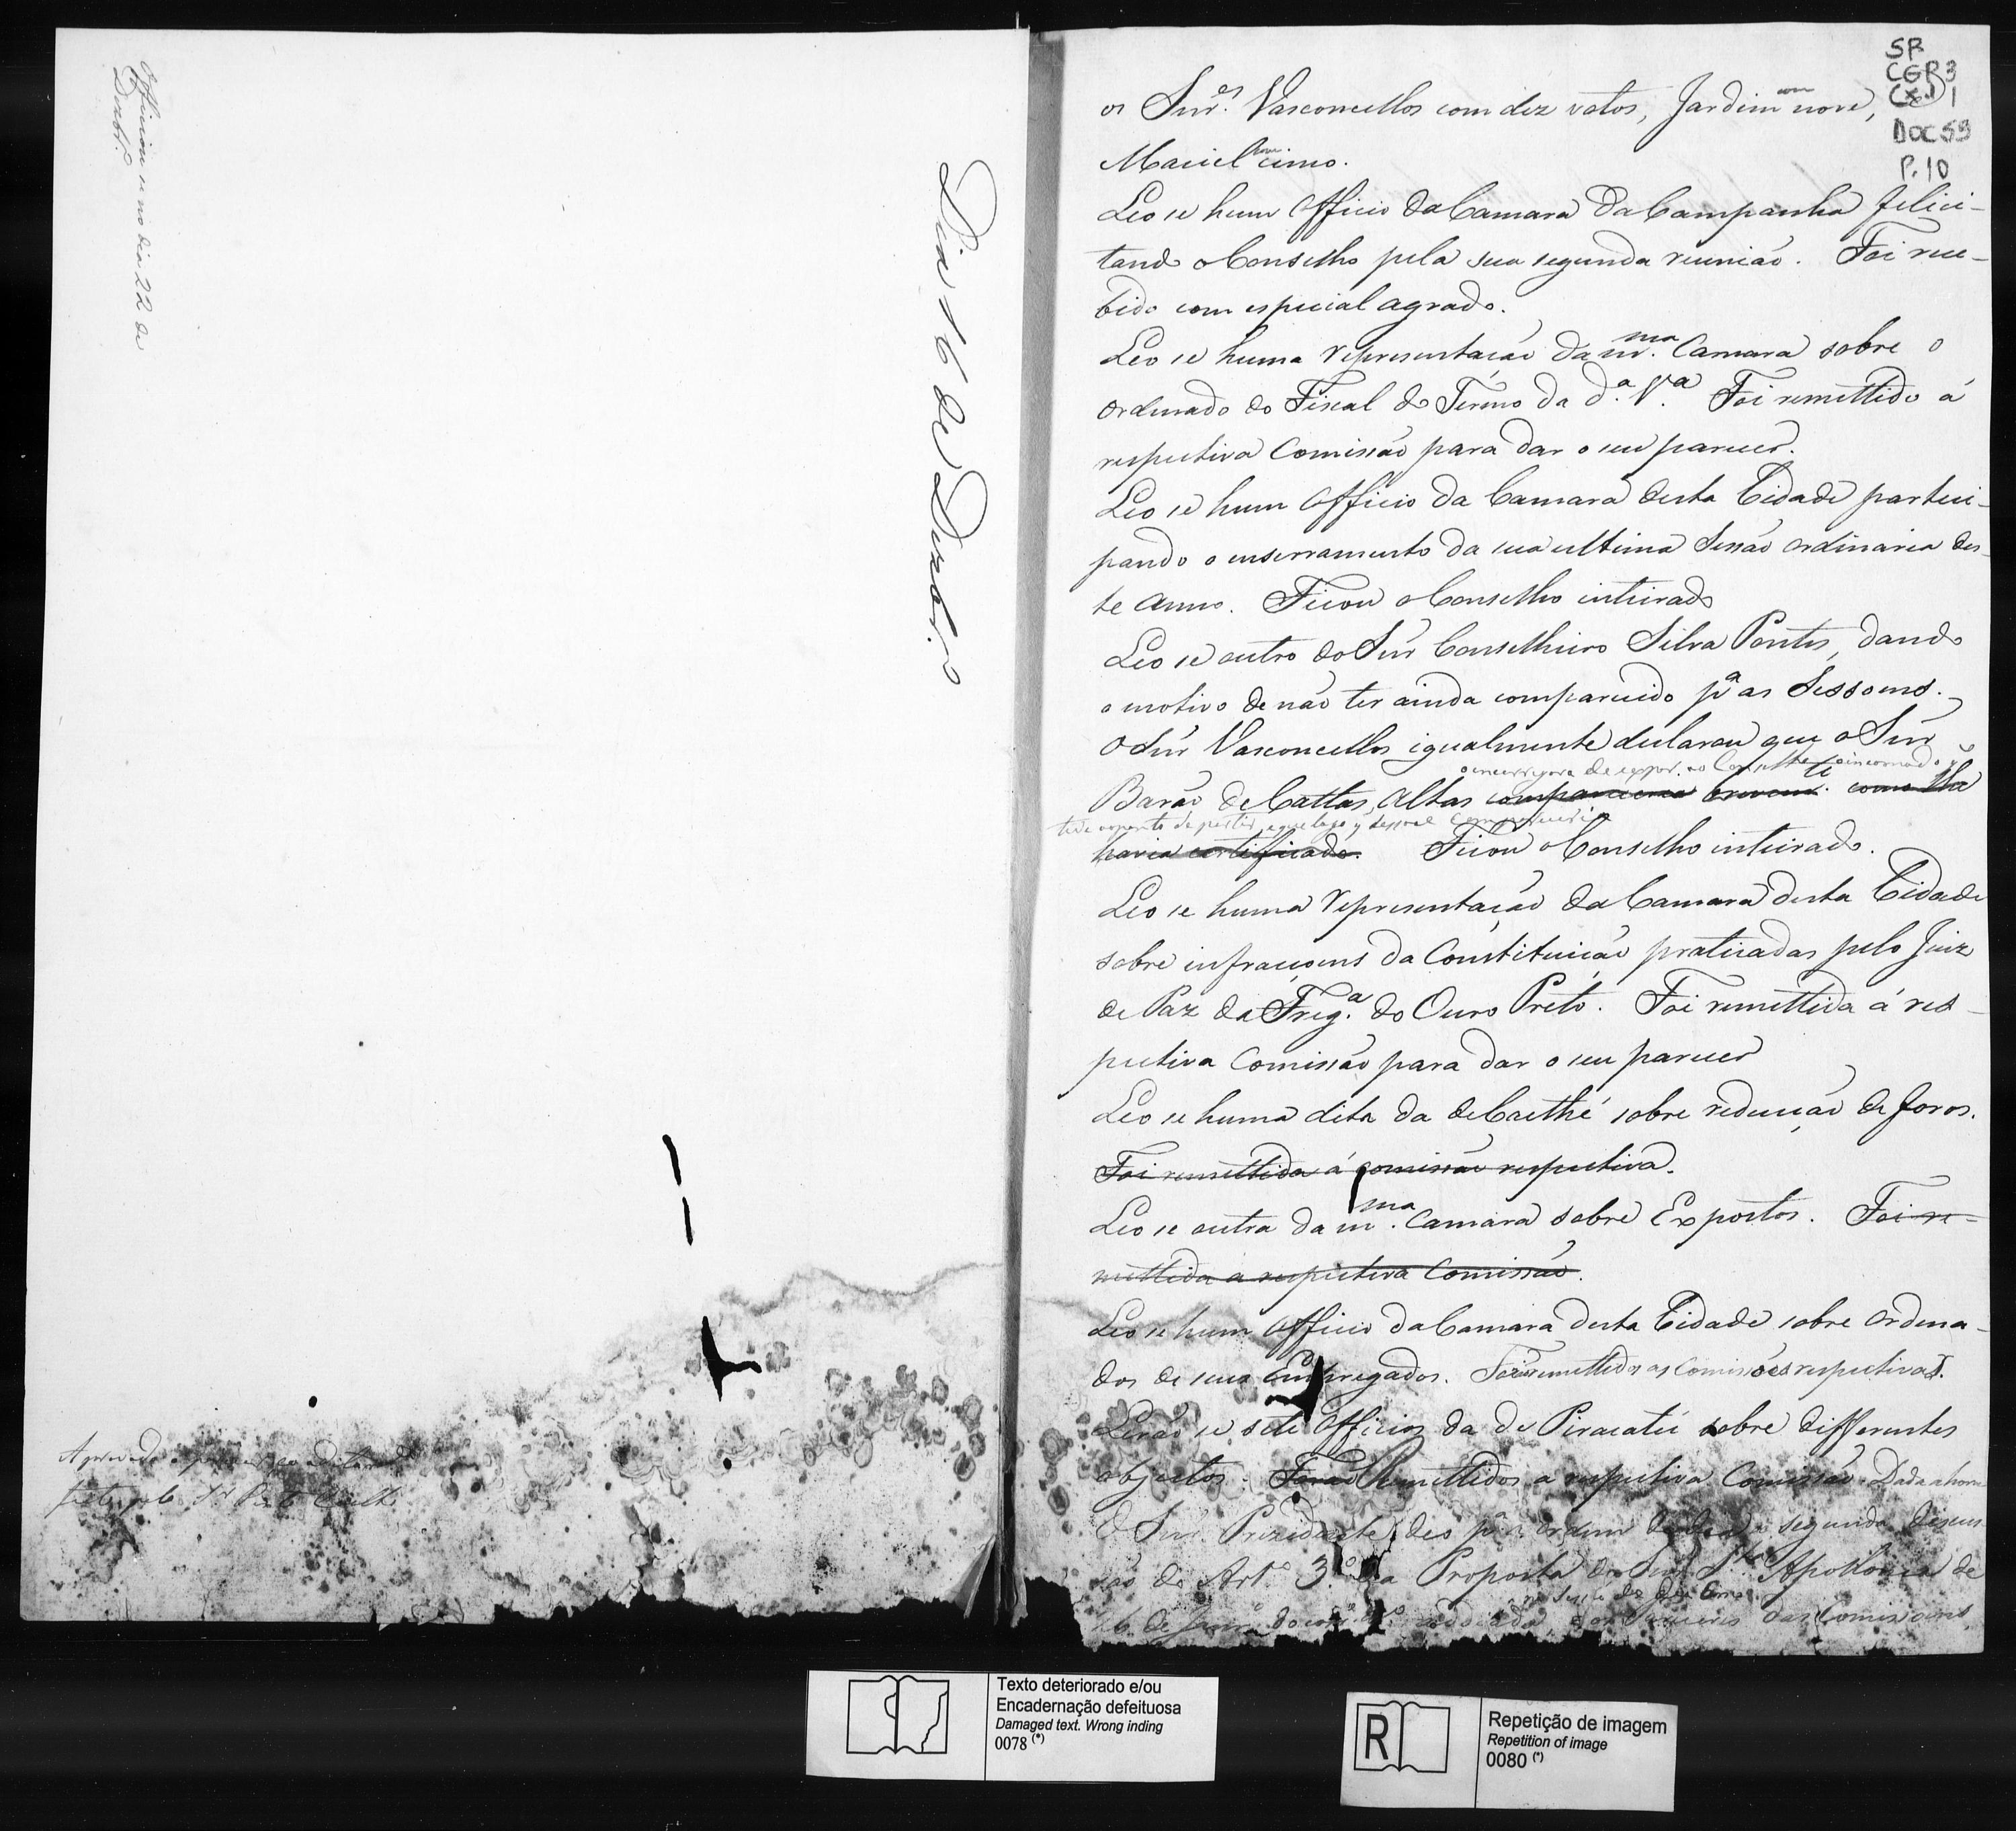 Officiou-se no dia 22 de
Dezbr.º
Dia 16 de Dezbr.º
Approvada
feito pelo Sr
SP
CGP3
CX. 1
DOC 59
P. 10
os Snr.es Vasconcellos com dez votos, Jardim com nove,
Maciel com cinco.
Leo se hum Officio da Camara da Campanha felici-
tando o Conselho pela sua segunda reunião. Foi rece-
bido com especial agrado.
Leo se huma representação da m.ma Camara sobre o
ordenado do Fiscal do Termo da d.a V.a Foi remettido á
respectiva Comissão para dar o seu parecer.
Leo se hum Officio da Camara desta Cidade partici-
pando o enserramento da sua ultima Sessão ordinaria des-
te anno. Ficou o Conselho inteirado
Leo se outro do Snr Conselheiro Silva Pontes, dando
o motivo de não ter ainda comparecido p.a as Sessoens.
O Snr Vasconcellos igualmente declarou que o Snr
o encarregara de expor ao Conselho o incomodo q
Barão de Cattas Altas compareceria brevem.te como lhe
teve a ponto de partir, e que logo q desse compareceria
havia certificado. Ficou o Conselho inteirado.
Leo se huma representação da Camara desta Cidade
sobre infraçoens da Constituição praticadas pelo Juiz
de Paz da Freg.a do Ouro Preto. Foi remettida á res-
pectiva Comissão para dar o seu parecer
Leo se huma dita da de Caethé sobre redução de foros.
Foi remettida á Comissão respectiva.
Leo se outra da m.ma Camara sobre Expostos. Foi re-
mettida a respectiva Comissão.
Leo se hum Officio da Camara desta Cidade sobre ordena-
dos de seus empregados. Forão remettidos as Comissões respectivas.
Lerão se sete Officios da de Piracatú sobre differentes
objectos. Forão Remettidos a respectiva Comissão. Dada a hora
O Snr. Prezidente deo p.a a ordem do dia a segunda discus
são do Art.º 3.º da Proposta do Snr. S.ta Apollonia de
16 de Janr.º do corr.e adoiada, e os Pareceres das Comissoens